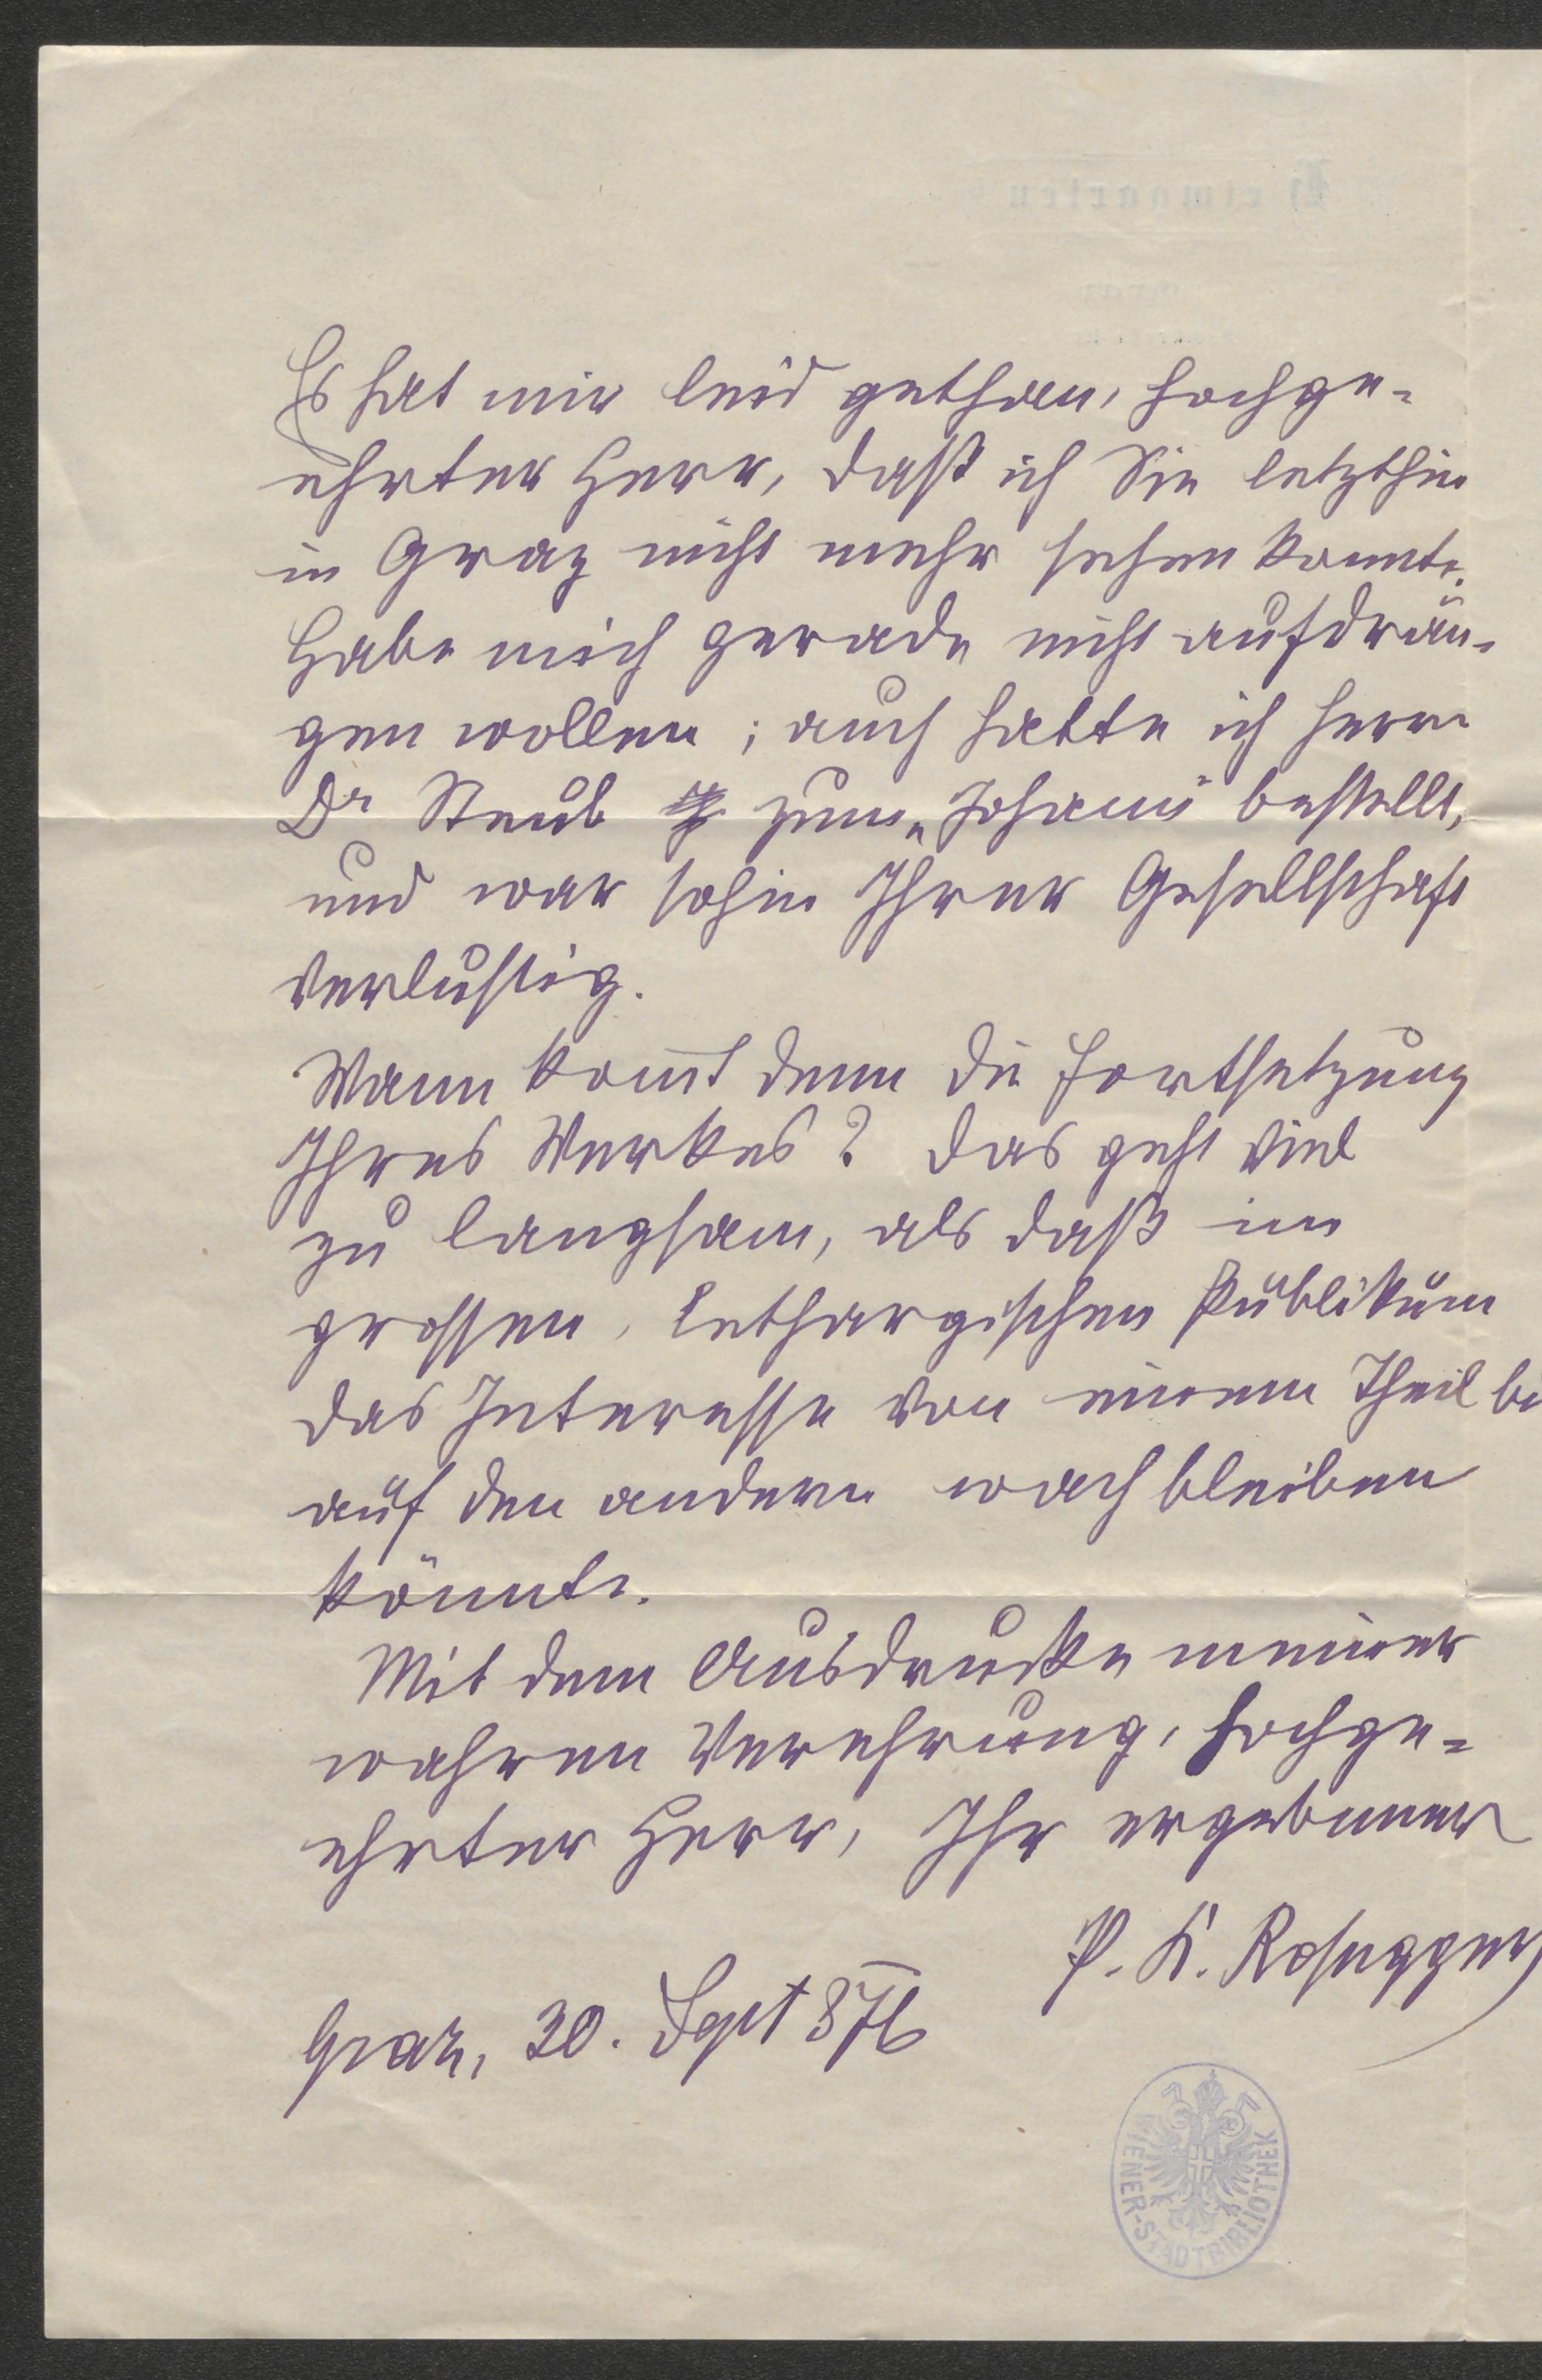 Es hat mir leid gethan, hochge-
ehrter Herr, daß ich Sie letzthin
in Graz nicht mehr sehen konnte.
Habe mich gerade nicht aufdrän-
gen wollen; auch hatte ich Herrn
Dr Steub zum „Johann" bestellt,
und war sohin Ihrer Gesellschaft
verlustig.
Wann kom̅t denn die Fortsetzung
Ihres Werkes? Das geht viel
zu langsam, als daß im
grossen, lethargischen Publikum
das Interesse von einem Theil bi
auf den andern wach bleiben
könnte.
Mit dem Ausdrucke meiner
wahren Verehrung, hochge-
ehrter Herr, Ihr ergebener
P. K. Rosegger
Graz, 30. Sept 876
WIENER-STADTBIBLIOTHEK